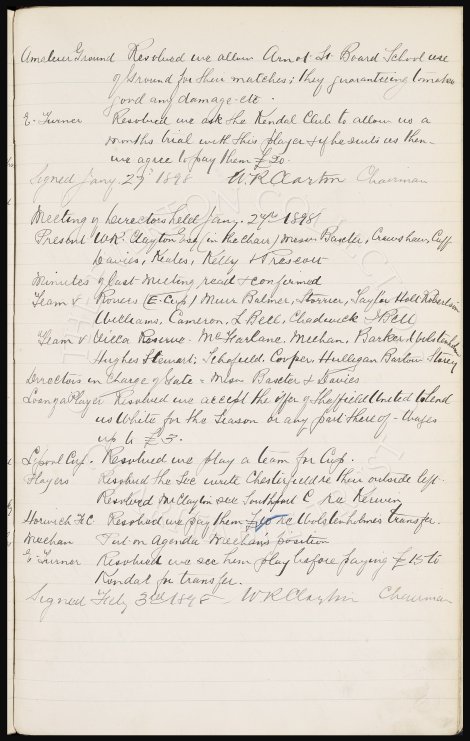 Amateur Ground Resolved we allow Arnot St Board School use
of Ground for their matches; they guaranteeing to make
good any damage etc.
E. Turner Resolved we ask the Kendal Club to allow us a
months trial with this player & if he suits us then
we agree to pay them £20.
Signed Jany. 27th 1898 W.R. Clayton Chairman
Meeting of Directors held Jany. 27th 1898
Present W.R. Clayton Esq (in the chair) Messrs Baxter, Crawshaw, Cuff
Davies, Keates, Kelly & Prescott
Minutes of last Meeting read & confirmed
Team v Rovers (E. Cup) Muir Balmer, Storrier, Taylor Holt Robertson
Williams, Cameron, L Bell, Chadwick J Bell
Team v Villa Reserve. McFarlane. Meehan, Barker Wolstenholme
Hughes Stewart, Schofield. Cooper Hulligan Barlow Storey
Directors in Charge of Gate = Messrs Baxter & Davies
Loan of a Player Resolved we accept the offer of Sheffield United to lend
us White for the Season or any part thereof - Wages
up to £3.
L'pool Cup. Resolved we play a team for Cup.
Players Resolved the Sec write Chesterfield re their outside left.
Resolved Mr Clayton see Southport C re Kerwin
Horwich F.C. Resolved we pay them £10 re Wolstenholmes transfer.
Meehan Put on Agenda "Meehan's position"
E. Turner Resolved we see him play before paying £15 to
Kendal for transfer.
Signed Feby 3rd 1898 W R Clayton Chairman